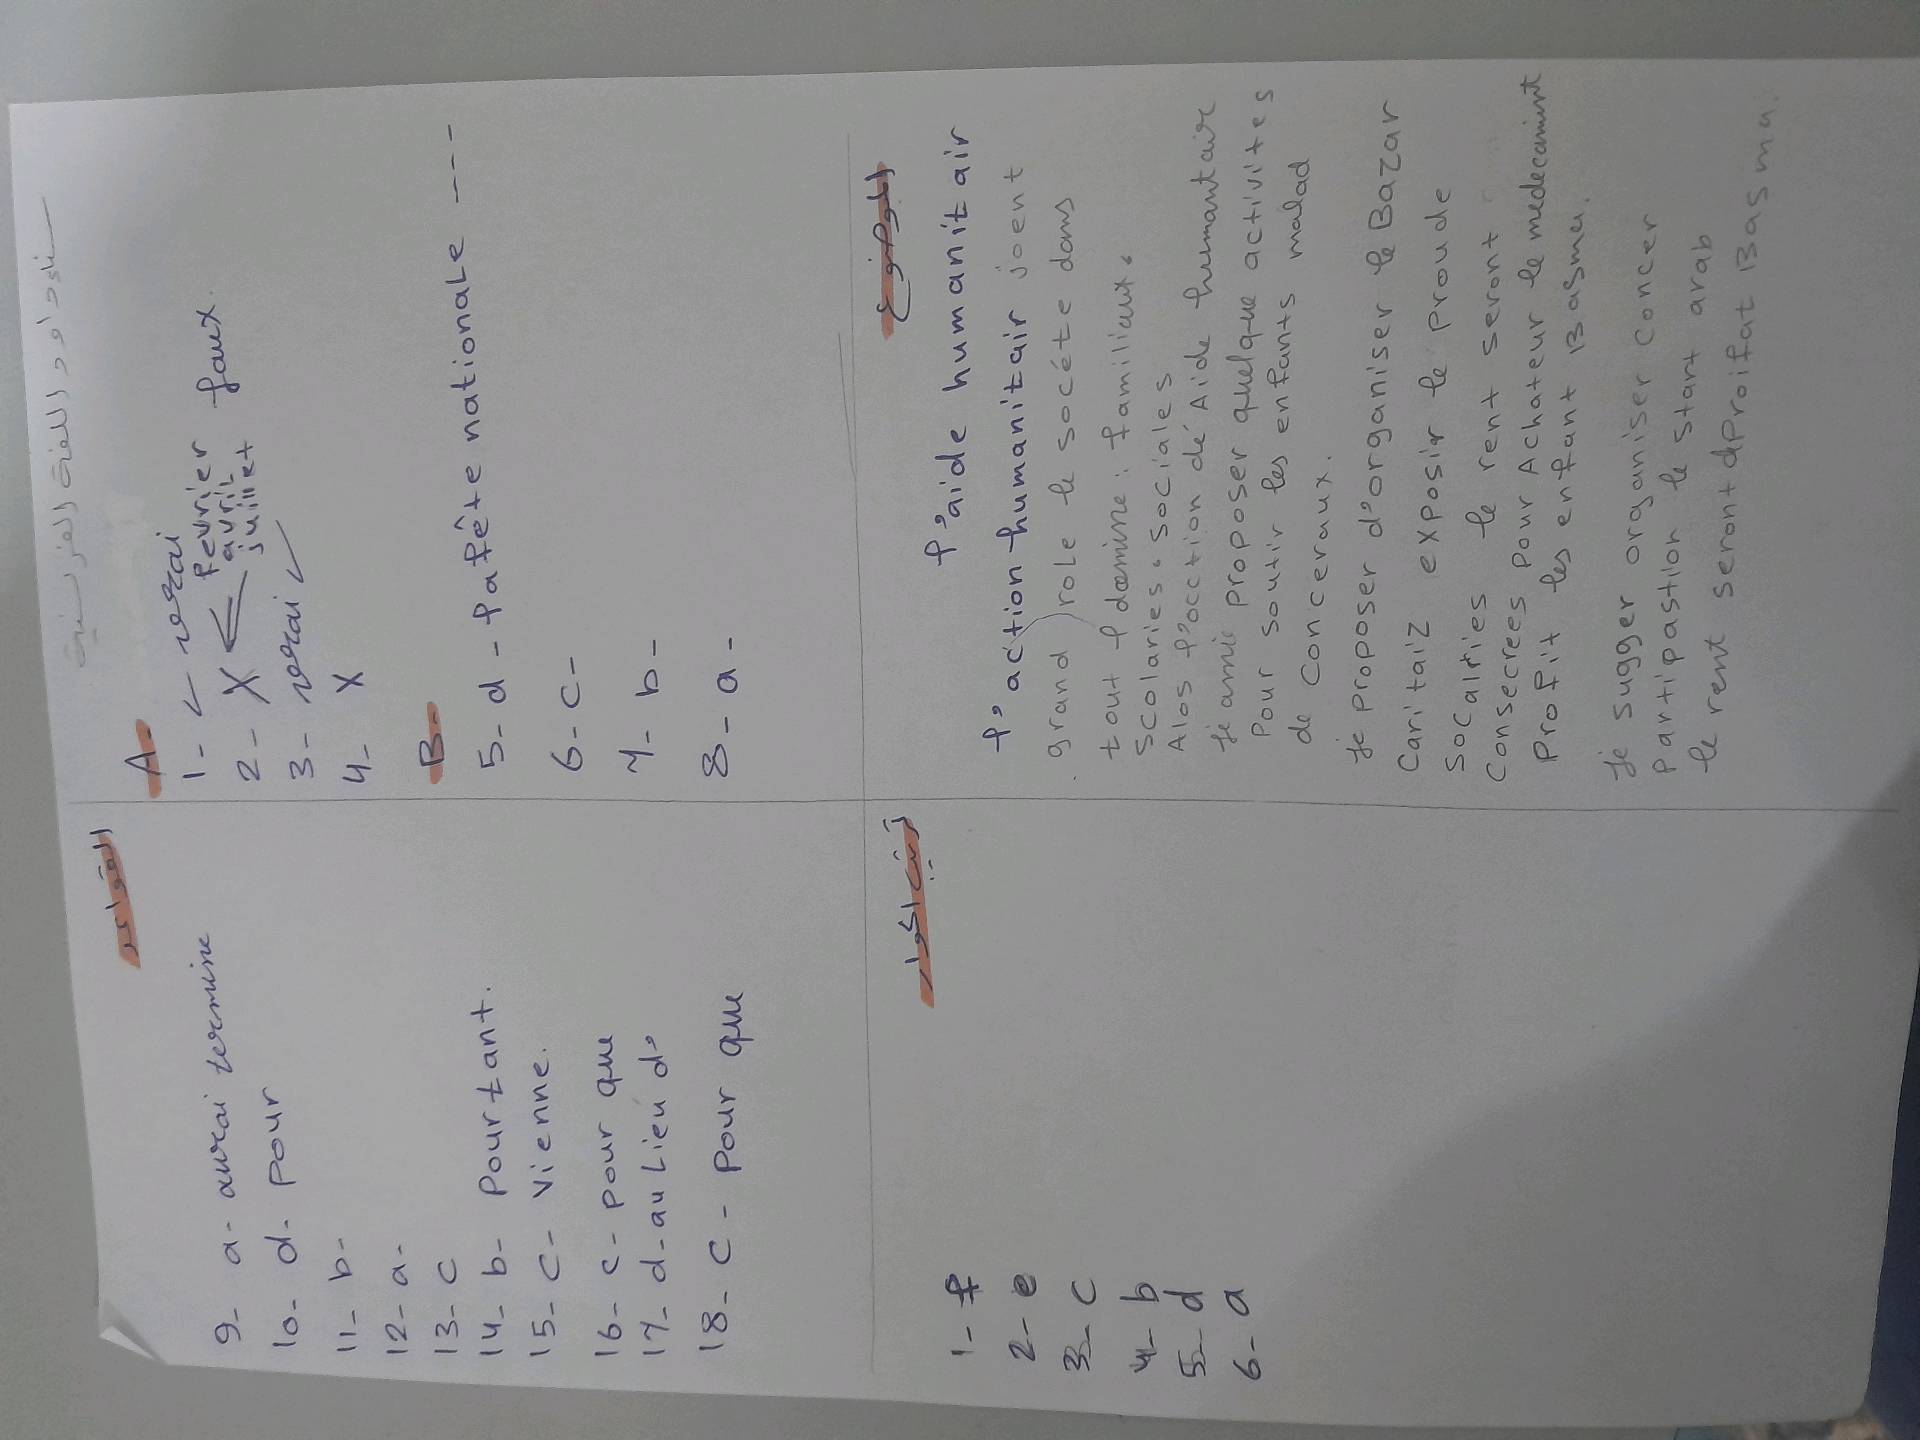 سناء داود اللغة الفرنسية
القواعد
9- a- aurai termine
10- d- pour
11- b-
12- a-
13- c
14- b- Pourtant.
15- c- Vienne.
16- c- pour que
17- d- au Lieu d°
18- c- pour que
A-
1- ✓ vrai
2- X ← février faux.
avril
juillet
3- vrai ✓
4- X
B-
5- d- la fête nationale ---
6- c-
7- b-
8- a-
ترتيب الحوار
1- f
2- e
3- c
4- b
5- d
6- a
الموضوع
l'aide humanitair
l'action humanitair joent
grand role le socéte dans
tout l domine: familiaux.
Scolaries. Sociales
Alos l'ocction dé Aide humantair
je amie proposer quelque activites
Pour soutir les enfants malad
de conceraux.
je proposer d'organiser le Bazar
Caritaiz exposir le proude
socalries le rent seront
consecrees pour Achateur le medecamint
profit les enfant Basma.
je sugger organiser concer
partipastion le start arab
le rent seront dproifat Basma.